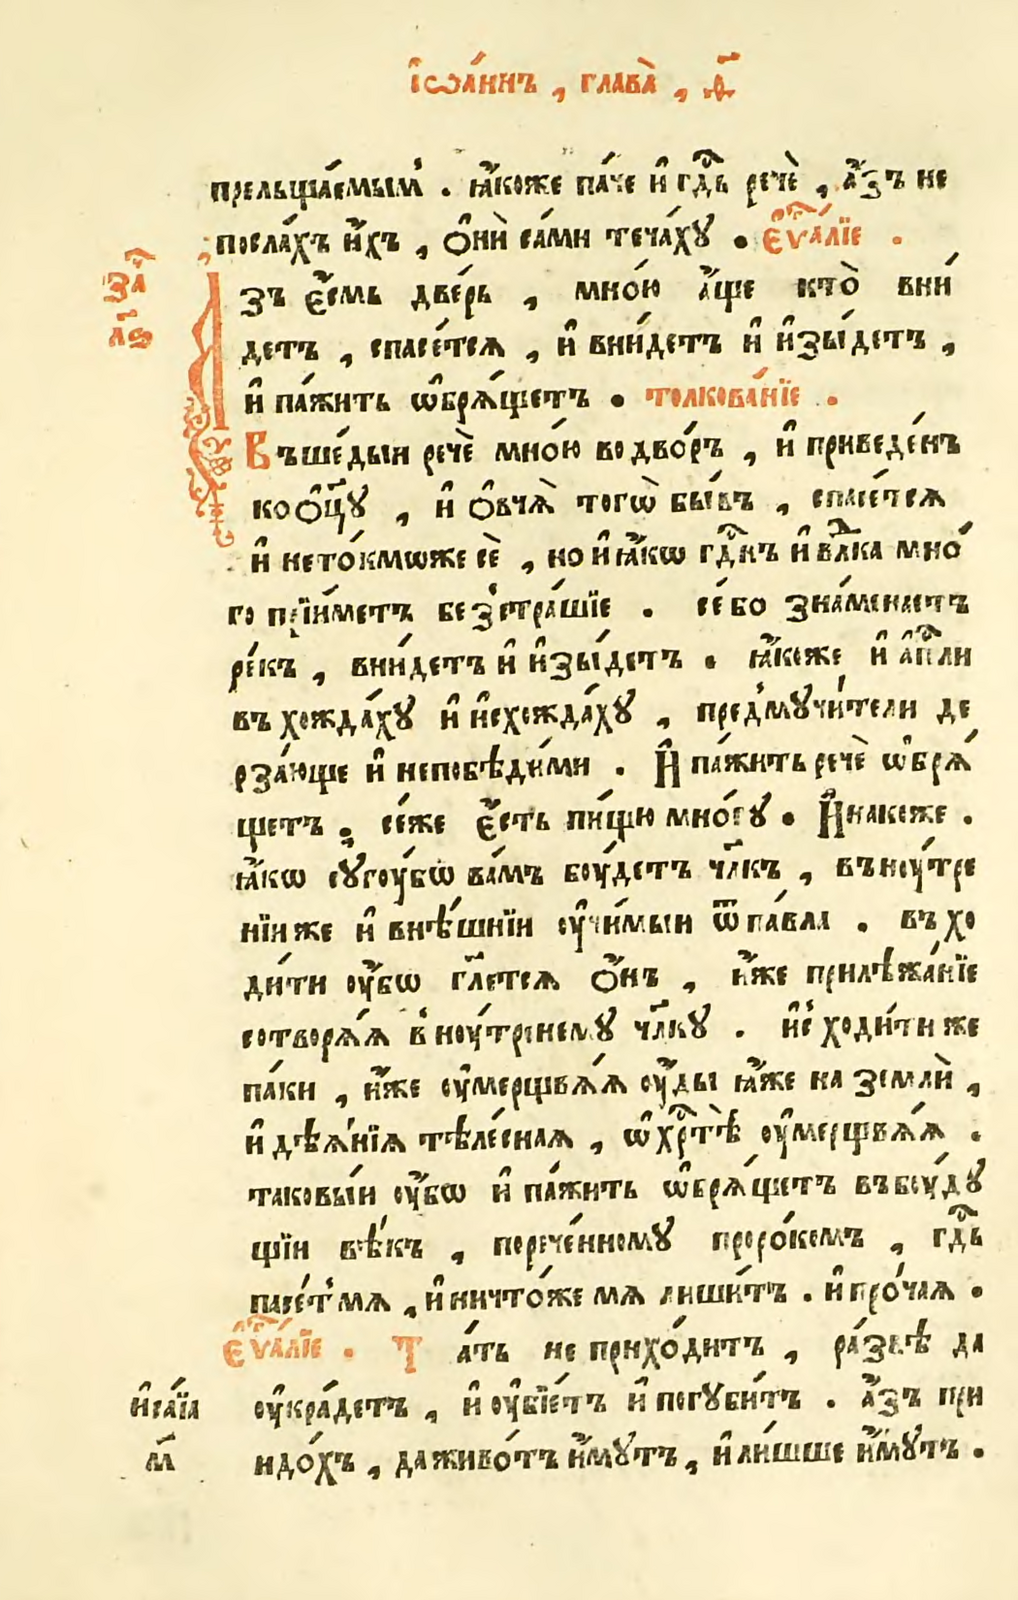 І҆ѡа́ннъ , глава̀ , ѳ҃
прельща́емым̾ . ꙗ҆́коже па́че и҆ гдⷭ҇ь речѐ , а҆́зъ не
посла́хъ и҆́хъ , ѻ҆нѝ са́ми теча́хꙋ . є҆ѵⷢ҇а́лїе .
за҇
лѕ҃
А҆зъ є҆́смь две́рь , мно́ю а҆́ще кто̀ вни́
детъ , спасе́тсѧ , и҆ вни́детъ и҆ и҆зы́детъ ,
и҆ па́жить ѡ҆брѧ́щетъ . толкова́нїе .
Въше́дыи речѐ мно́ю во дво́ръ , и҆ приведе́нъ
ко ѻ҆ц҃ꙋ , и҆ ѻ҆вча̀ того̀ бы́въ , спасе́тсѧ
и҆ не то́кмѡже сѐ , но и҆ ꙗ҆́кѡ гдⷭ҇нъ и҆ влⷣка мно́
го прїи́метъ без̾стра́шїе . се́ бо зна́менаетъ
ре́къ , вни́детъ и҆ и҆зы́детъ . ꙗ҆́коже и҆ а҆пⷭ҇ли
въхожда́хꙋ и҆ и҆схожда́хꙋ , пред̾мꙋчи́тели де
рза́юще и҆ непобѣди́ми . И҆ па́жить речѐ ѡ҆брѧ́
щетъ , се́же є҆́сть пи́щю мно́гꙋ . И҆накоже .
ꙗ҆́кѡ сꙋгоу́бѡ ва́мъ боу́детъ чл҃къ , вънꙋ́тре
нїиже и҆ внѣ́шнїи оу҆чи́мыи ѿ па́вла . въхо
ди́ти оу҆́бѡ гл҃етсѧ ѻ҆́нъ , и҆́же прилѣжа́нїе
сотворѧ́ѧ в̾ноу́тренемꙋ чл҃кꙋ . и҆с̾ходи́ти же
па́ки , и҆́же оу҆мерщвѧ́ѧ оу҆́ды ꙗ҆́же на землѝ ,
и҆ дѣѧ́нїѧ тѣле́снаѧ , ѡ҆ хрⷭ҇тѣ̀ оу҆мерщвѧ́ѧ .
таковы́и оу҆́бѡ и҆ па́жить ѡ҆брѧ́щетъ въбоу́дꙋ
щїи вѣ́къ , порече́нномꙋ проро́комъ , гдⷭ҇ь
пасе́т̾ мѧ , и҆ ничто́же мѧ лиши́тъ . и҆ про́чаѧ .
є҆ѵⷢ҇а́лїе . Та́ть не прихо́дитъ , ра́звѣ да
и҆са́їа оу҆кра́детъ , и҆ оу҆бїе́тъ и҆ погꙋби́тъ . а҆́зъ при
м҃ идо́хъ , да живо́тъ и҆́мꙋтъ , и҆ ли́шше и҆́мꙋтъ .